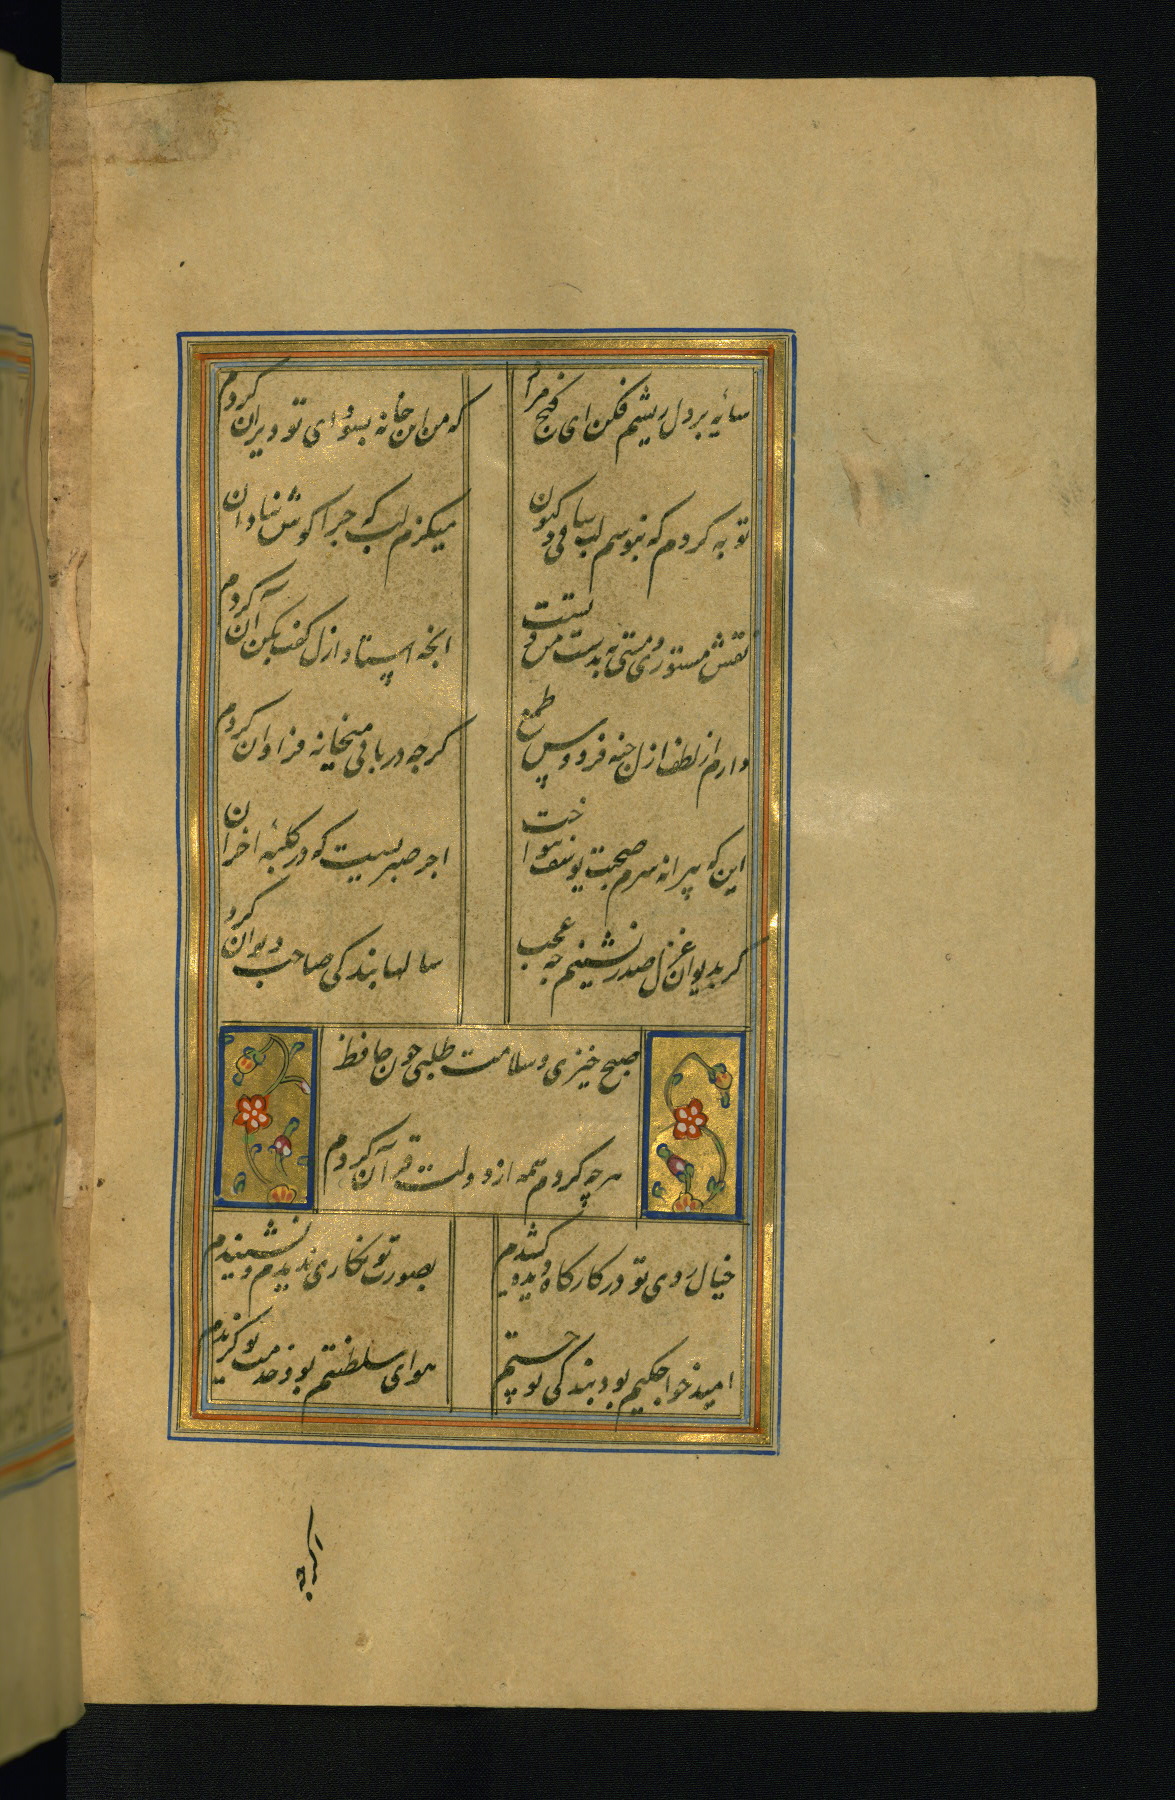 سایه بر دل ریشم فکن ای کنج مراد
که من این خانه بسودای تو ویران کردم
توبه کردم که نبوسم لب ساقی و کنون
میکزم لب که جرا کوش بنادان کردم
نقش مستوری و مستی نه بدست من و تست
انجه استاد ازل کفت بکن آن کردم
دارم از لطف ازل جنه فردوس طمع
کرجه دربانی میخانه فراوان کردم
این که پیرانه سرم صحبت یوسف بنواخت
اجر صبریست که در کلبه احزان
کر بدیوان غزل صدر نشینم جه عجب
سالها بندکی صاحب دیوان کرد
صبح خیزی و سلامت طلبی جون حافظ
هر چه کردم همه از دولت قرآن کردم
خیال روی تو در کارکاه دیده کشیدم
بصورت تو نکاری ندیدم و نشنیدم
امید خواجکیم بود بندکی تو جستم
هوای سلطنتم بود خدمت تو کزیدم
اکرچه